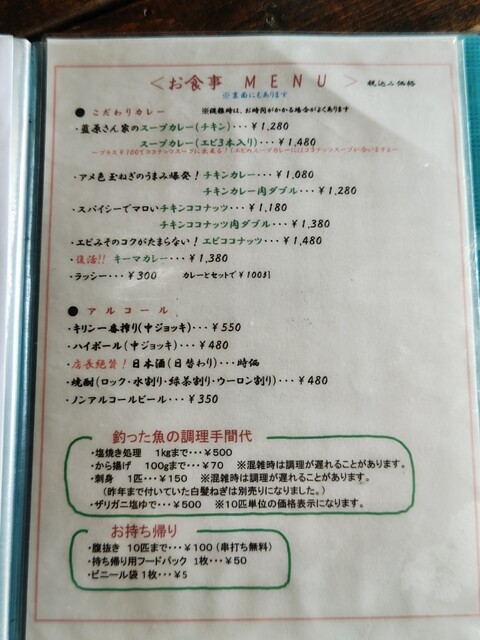 ＜お食事 MENU＞ 税込み価格
※裏面にもあります
● こだわりカレー ※混雑時は、お時間がかかる場合がよくあります
・藍原さん家のスープカレー(チキン)･･･¥1,280
スープカレー(エビ3本入り)･･･¥1,480
・アメ色玉ねぎのうまみ爆発！チキンカレー･･･¥1,080
チキンカレー肉ダブル･･･¥1,280
・スパイシーでマロいチキンココナッツ･･･¥1,180
チキンココナッツ肉ダブル･･･¥1,380
・エビみそのコクがたまらない！エビココナッツ･･･¥1,480
・復活!! キーマカレー･･･¥1,380
・ラッシー･･･¥300 カレーとセットで¥100引
● アルコール
・キリン一番搾り(中ジョッキ)･･･¥550
・ハイボール(中ジョッキ)･･･¥480
・店長絶賛！日本酒(日替わり)･･･時価
・焼酎(ロック・水割り・緑茶割り・ウーロン割り)･･･¥480
・ノンアルコールビール･･･¥350
釣った魚の調理手間代
・塩焼き処理 1kgまで･･･¥500
・から揚げ 100gまで･･･¥70 ※混雑時は調理が遅れることがあります。
・刺身 1匹･･･¥150 ※混雑時は調理が遅れることがあります。
(昨年まで付いていた白髪ねぎは別売りになりました。)
・ザリガニ塩ゆで･･･¥500 ※10匹単位の価格表示になります。
お持ち帰り
・腹抜き 10匹まで･･･¥100(串打ち無料)
・持ち帰り用フードパック 1枚･･･¥50
・ビニール袋 1枚･･･¥5